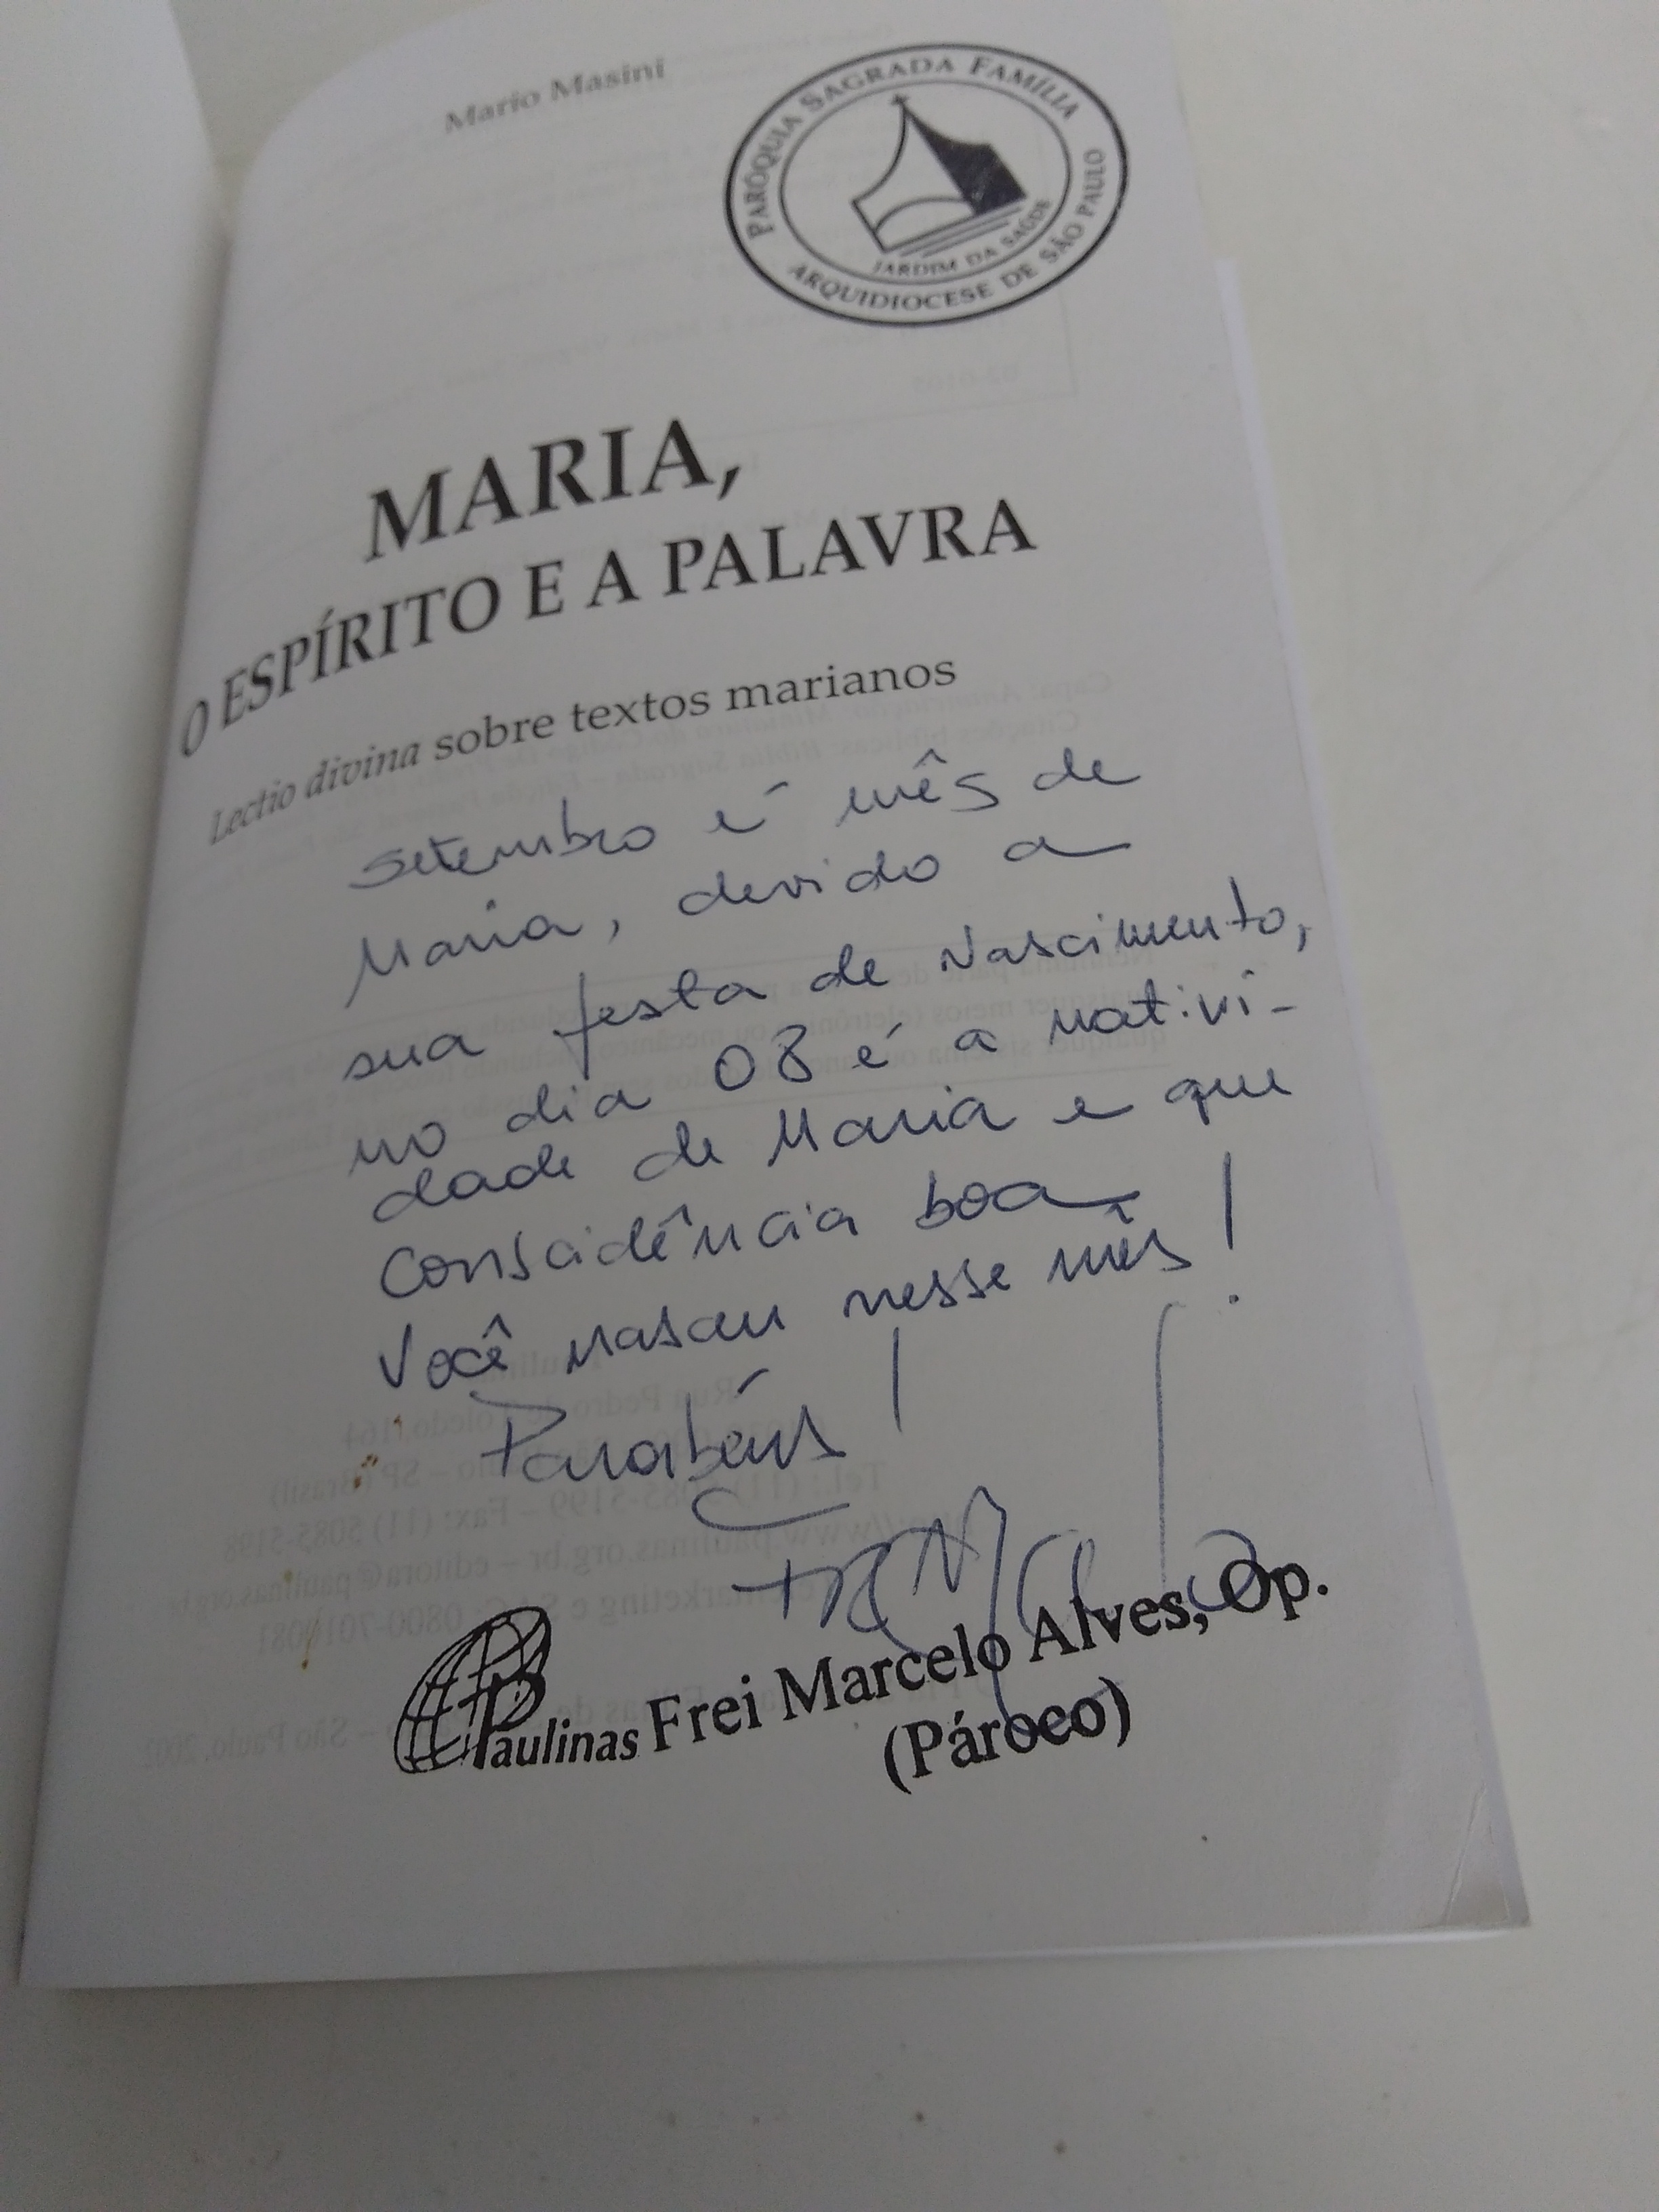 Mario Masini
PARÓQUIA SAGRADA FAMÍLIA
JARDIM DA SAÚDE
ARQUIDIOCESE DE SÃO PAULO
MARIA,
O ESPÍRITO E A PALAVRA
Lectio divina sobre textos marianos
Setembro é mês de
Maria, devido a
sua festa de Nascimento,
no dia 08 é a nativi-
dade de Maria e que
Conscidência boa
Você nasceu nesse mês!
Parabéns!
Paulinas
Frei Marcelo Alves, Op.
(Pároco)